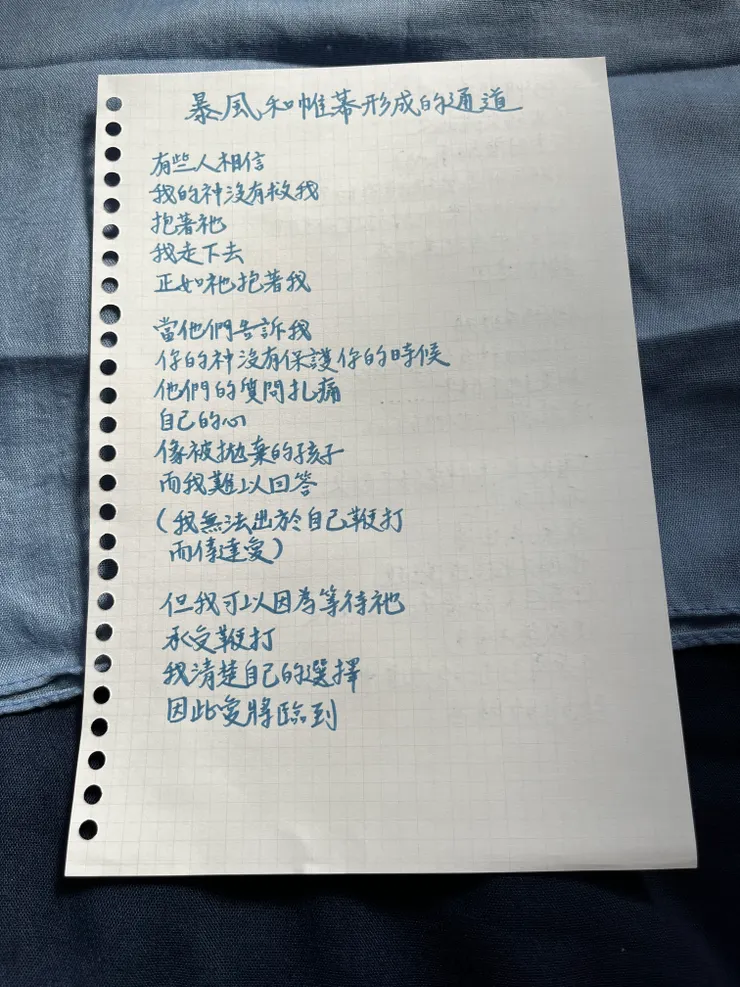 暴風和帷幕形成的通道
有些人相信
我的神沒有救我
抱著祂
我走下去
正如祂抱著我
當他們告訴我
你的神沒有保護你的時候
他們的質問扎痛
自己的心
像被拋棄的孩子
而我難以回答
（我無法出於自己鞭打
而傳達愛）
但我可以因為等待祂
承受鞭打
我清楚自己的選擇
因此愛將臨到